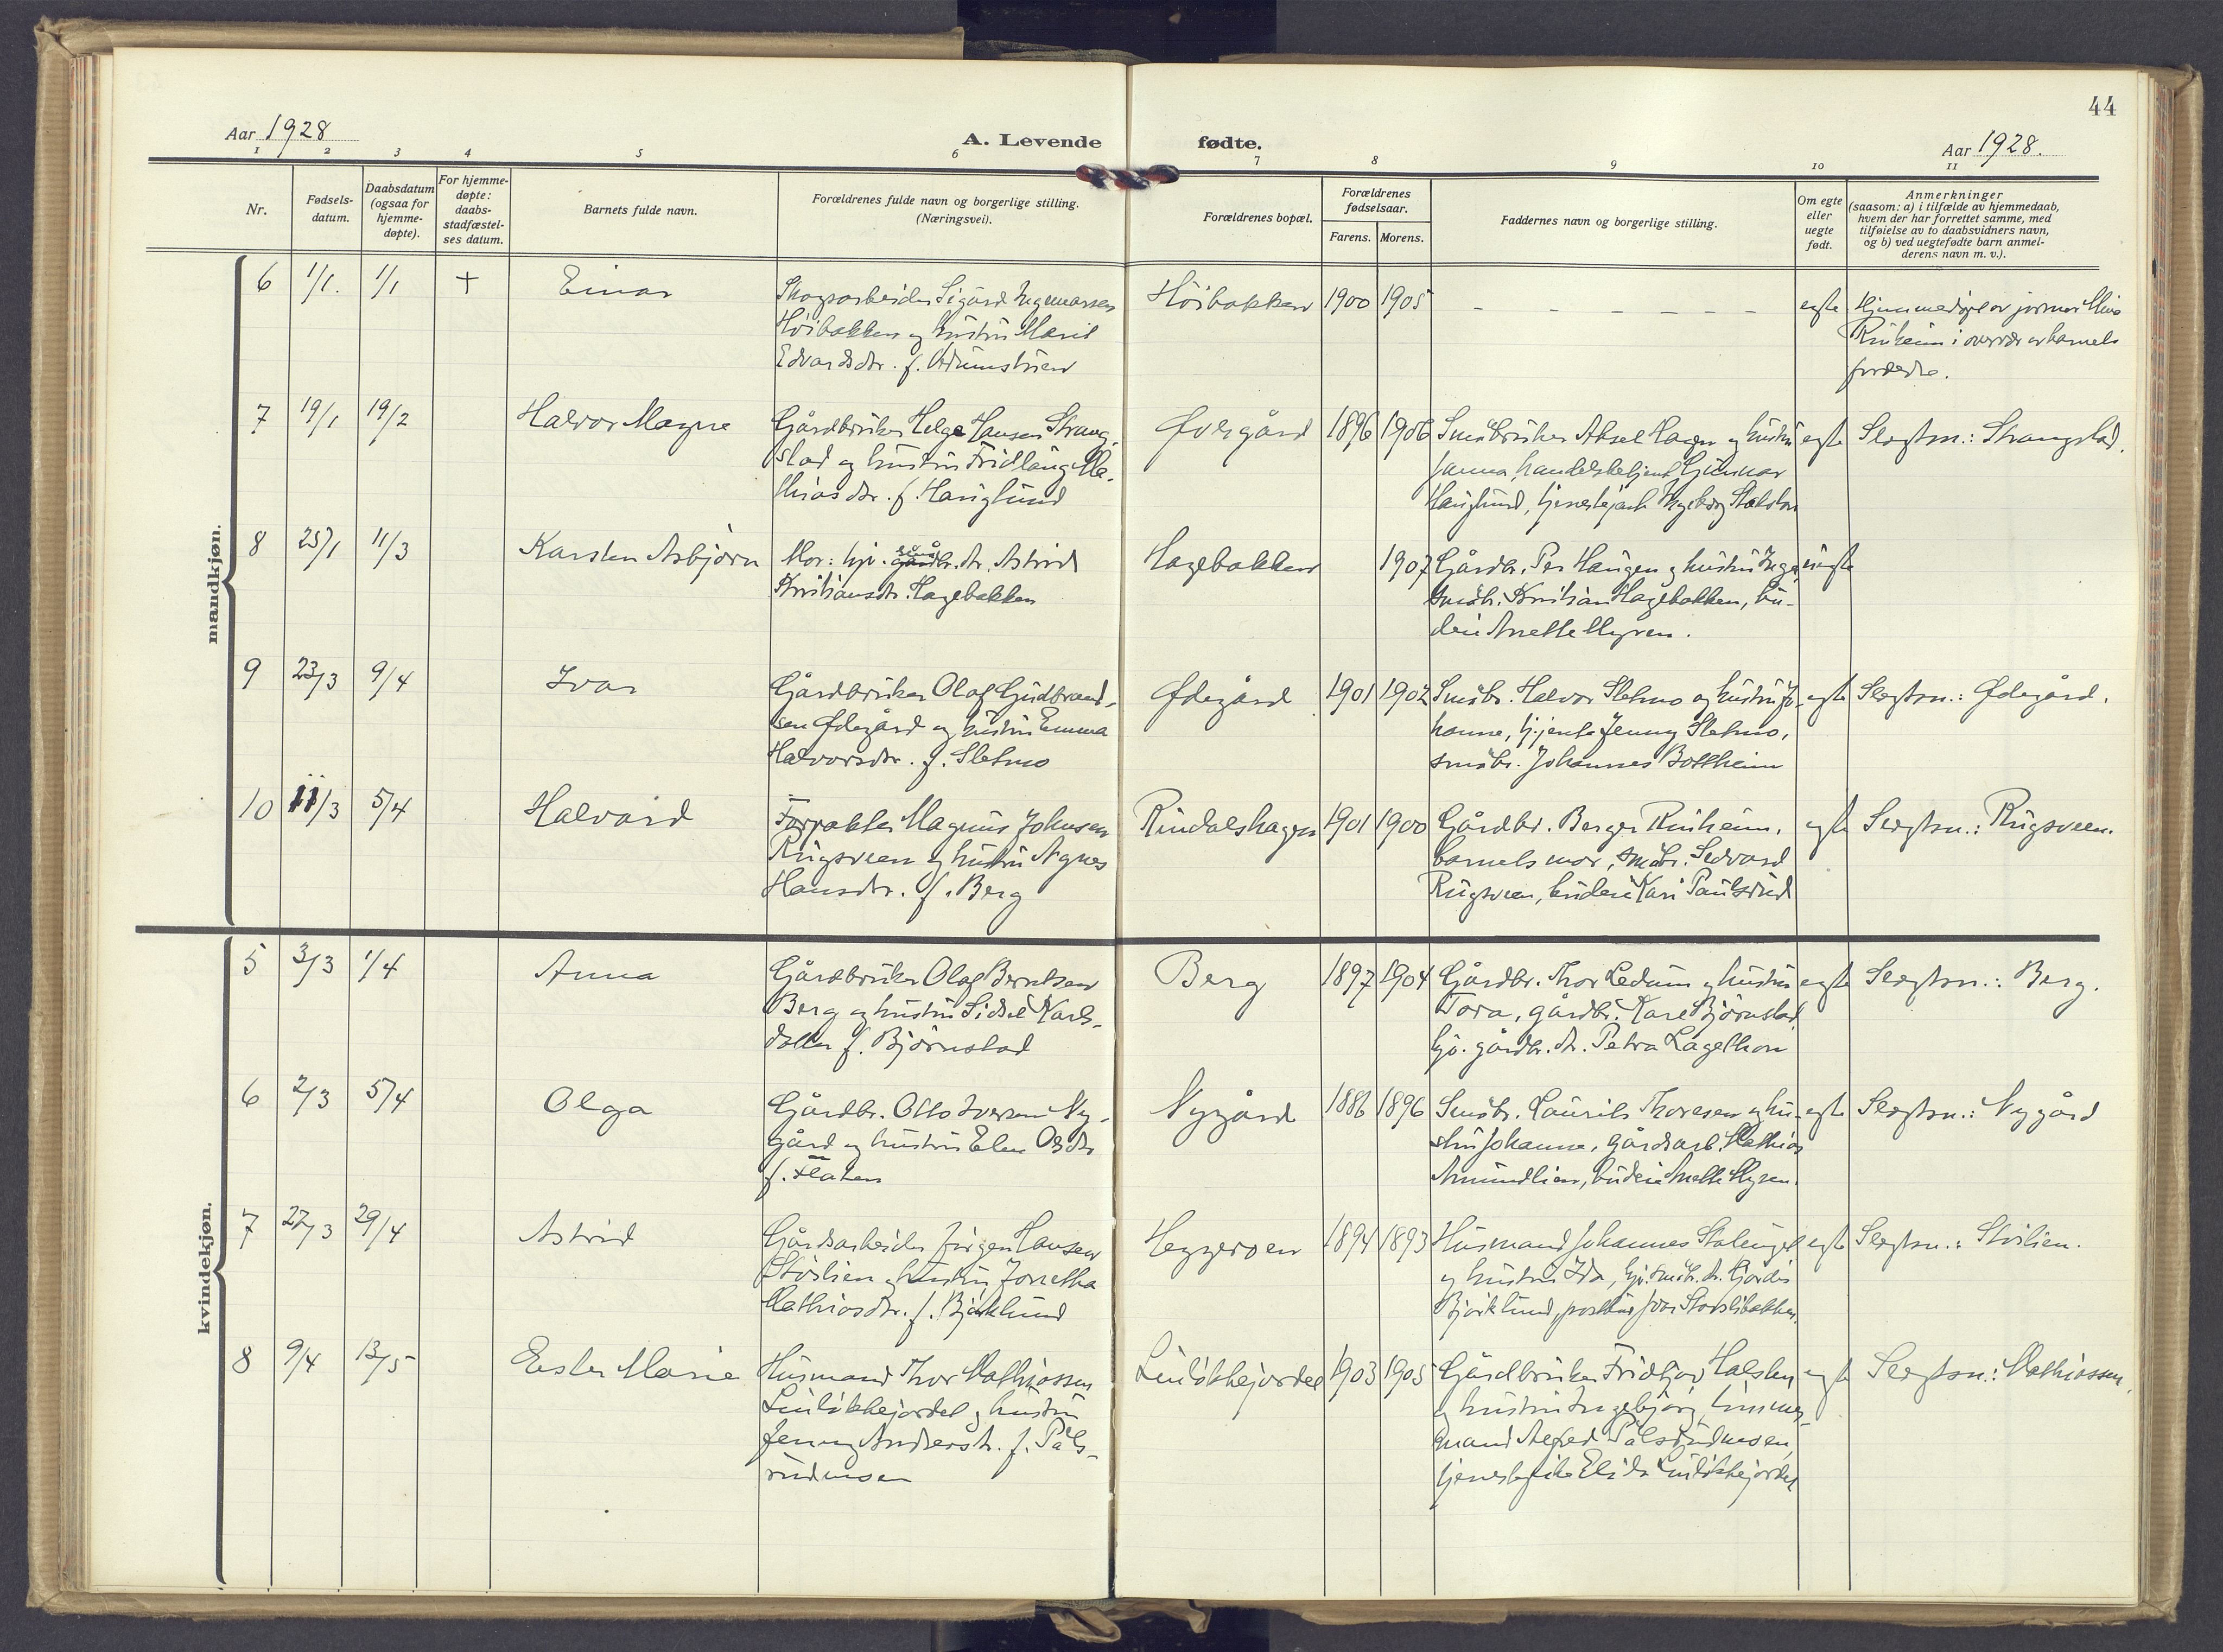 44
Aar 1928
A. Levende
fødte.
Aar 1928.
1 2 3 4 5 6 7 8 9 10 11
Nr.
Fødsels-
datum.
Daabsdatum
(ogsaa for
hjemme-
døpte).
For hjemme-
døpte:
daabs-
stadfæstel-
ses datum.
Barnets fulde navn.
Forældrenes fulde navn og borgerlige stilling.
(Næringsvei).
Forældrenes bopæl.
Forældrenes
fødselsaar.
Farens. Morens.
Faddernes navn og borgerlige stilling.
Om egte
eller
uegte
født.
Anmerkninger
(saasom: a) i tilfælde av hjemmedaab,
hvem der har forrettet samme, med
tilføielse av to daabsvidners navn,
og b) ved uegtefødte barn anmel-
derens navn m. v.).
mandkjøn.
6 1/1. 1/1 + Einar
Skogsarbeider Sigurd Ingemarsen
Höibakken og hustru Marit
Edvardsdtr. f.
Höibakken 1900 1905
- - - - - - -
egte
Hjemmedöpt av jormor
Rinheim i overvær av barnets
foreldre.
7 19/1 19/2 Halvor Magne
Gårdbruker Helge Hansen Strang-
stad og hustru Fridlaug Ma-
thiasdtr. f. Hauglund
Øvergård 1896 1906
Småbruker Aksel Hagen og hustru
Janna, handelsbetjent Gunnar
Hauglund, tjenestejente Ingeborg
egte Slegtsn.: Strangstad.
8 25/1 11/3 Karsten Asbjörn
Mor: hjv. små gårdbr. dtr. Astrid
Kristiansdtr. Hagebakken
Hagebakken 1907
Gårdbr. Per Haugen og hustru Inga,
småbr. Kristian Hagebakken, bu-
deie Anette Myren.
uegte
9 23/3 9/4 Ivar
Gårdbruker Olaf Gudbrand-
sen Ødegård og hustru Emma
Halvorsdtr. f. Sletmo
Ødegård 1901 1902
Småbr. Halvor Sletmo og hustru Jo-
hanne, tj.jente Jenny Sletmo,
småbr. Johannes Bottheim
egte Slegtsn.: Ødegård.
10 11/3 5/4 Halvard
Forpakter Magnus Johnsen
Rugsveen og hustru Agnes
Hansdtr. f. Berg
Rindalshagen 1901 1900
Gårdbr. Berger Rinheim,
barnets mor, småbr. Sedvard
Rugsveen, budeie Kari Paulsrud
egte Slegtsn.: Rugsveen.
kvindekjøn.
5 3/3 1/4 Anna
Gårdbruker Olaf Berntsen
Berg og hustru Sidsel Karls-
datter f. Björnstad
Berg 1897 1904
Gårdbr. Thor Ledum og hustru
Tora, gårdbr. Kare Björnstad,
hjv. gårdbr. dtr. Petra Lagethon
egte Slegtsn.: Berg.
6 2/3 5/4 Olga
Gårdbr. Otto Iversen Ny-
gård og hustru Elen Olsdtr
f. Flaten
Nygård 1886 1896
Småbr. Laurits Thoresen og hu-
stru Johanne, gårdsarb. Mathias
Amundlien, budeie Anette Myren.
egte Slegtsn.: Nygård
7 27/3 29/4 Astrid
Gårdsarbeider Jörgen Hansen
Störlien og hustru Jorretha
Mathiasdtr. f. Björklund
Heggeroen 1894 1893
Husmand Johannes Stalenget
og hustru Ida, hjv. småb. dtr. Hjördis
Björklund, Ivar Storslibakken.
egte Slegtsn.: Störlien.
8 9/4 13/5 Ester Marie
Husmand Thor Mathiassen
Linlökkejordet og hustru
Jenny Andersdtr. f. Påls-
rudmoen
Linlökkejordet 1903 1905
Gårdbruker Fridtjov Halsten
og hustru Ingebjörg, tömmer-
mand Alfred Pålsrudmoen,
tjenestepike Elida Linlökkejordet
egte Slegtsn.: Mathiassen.